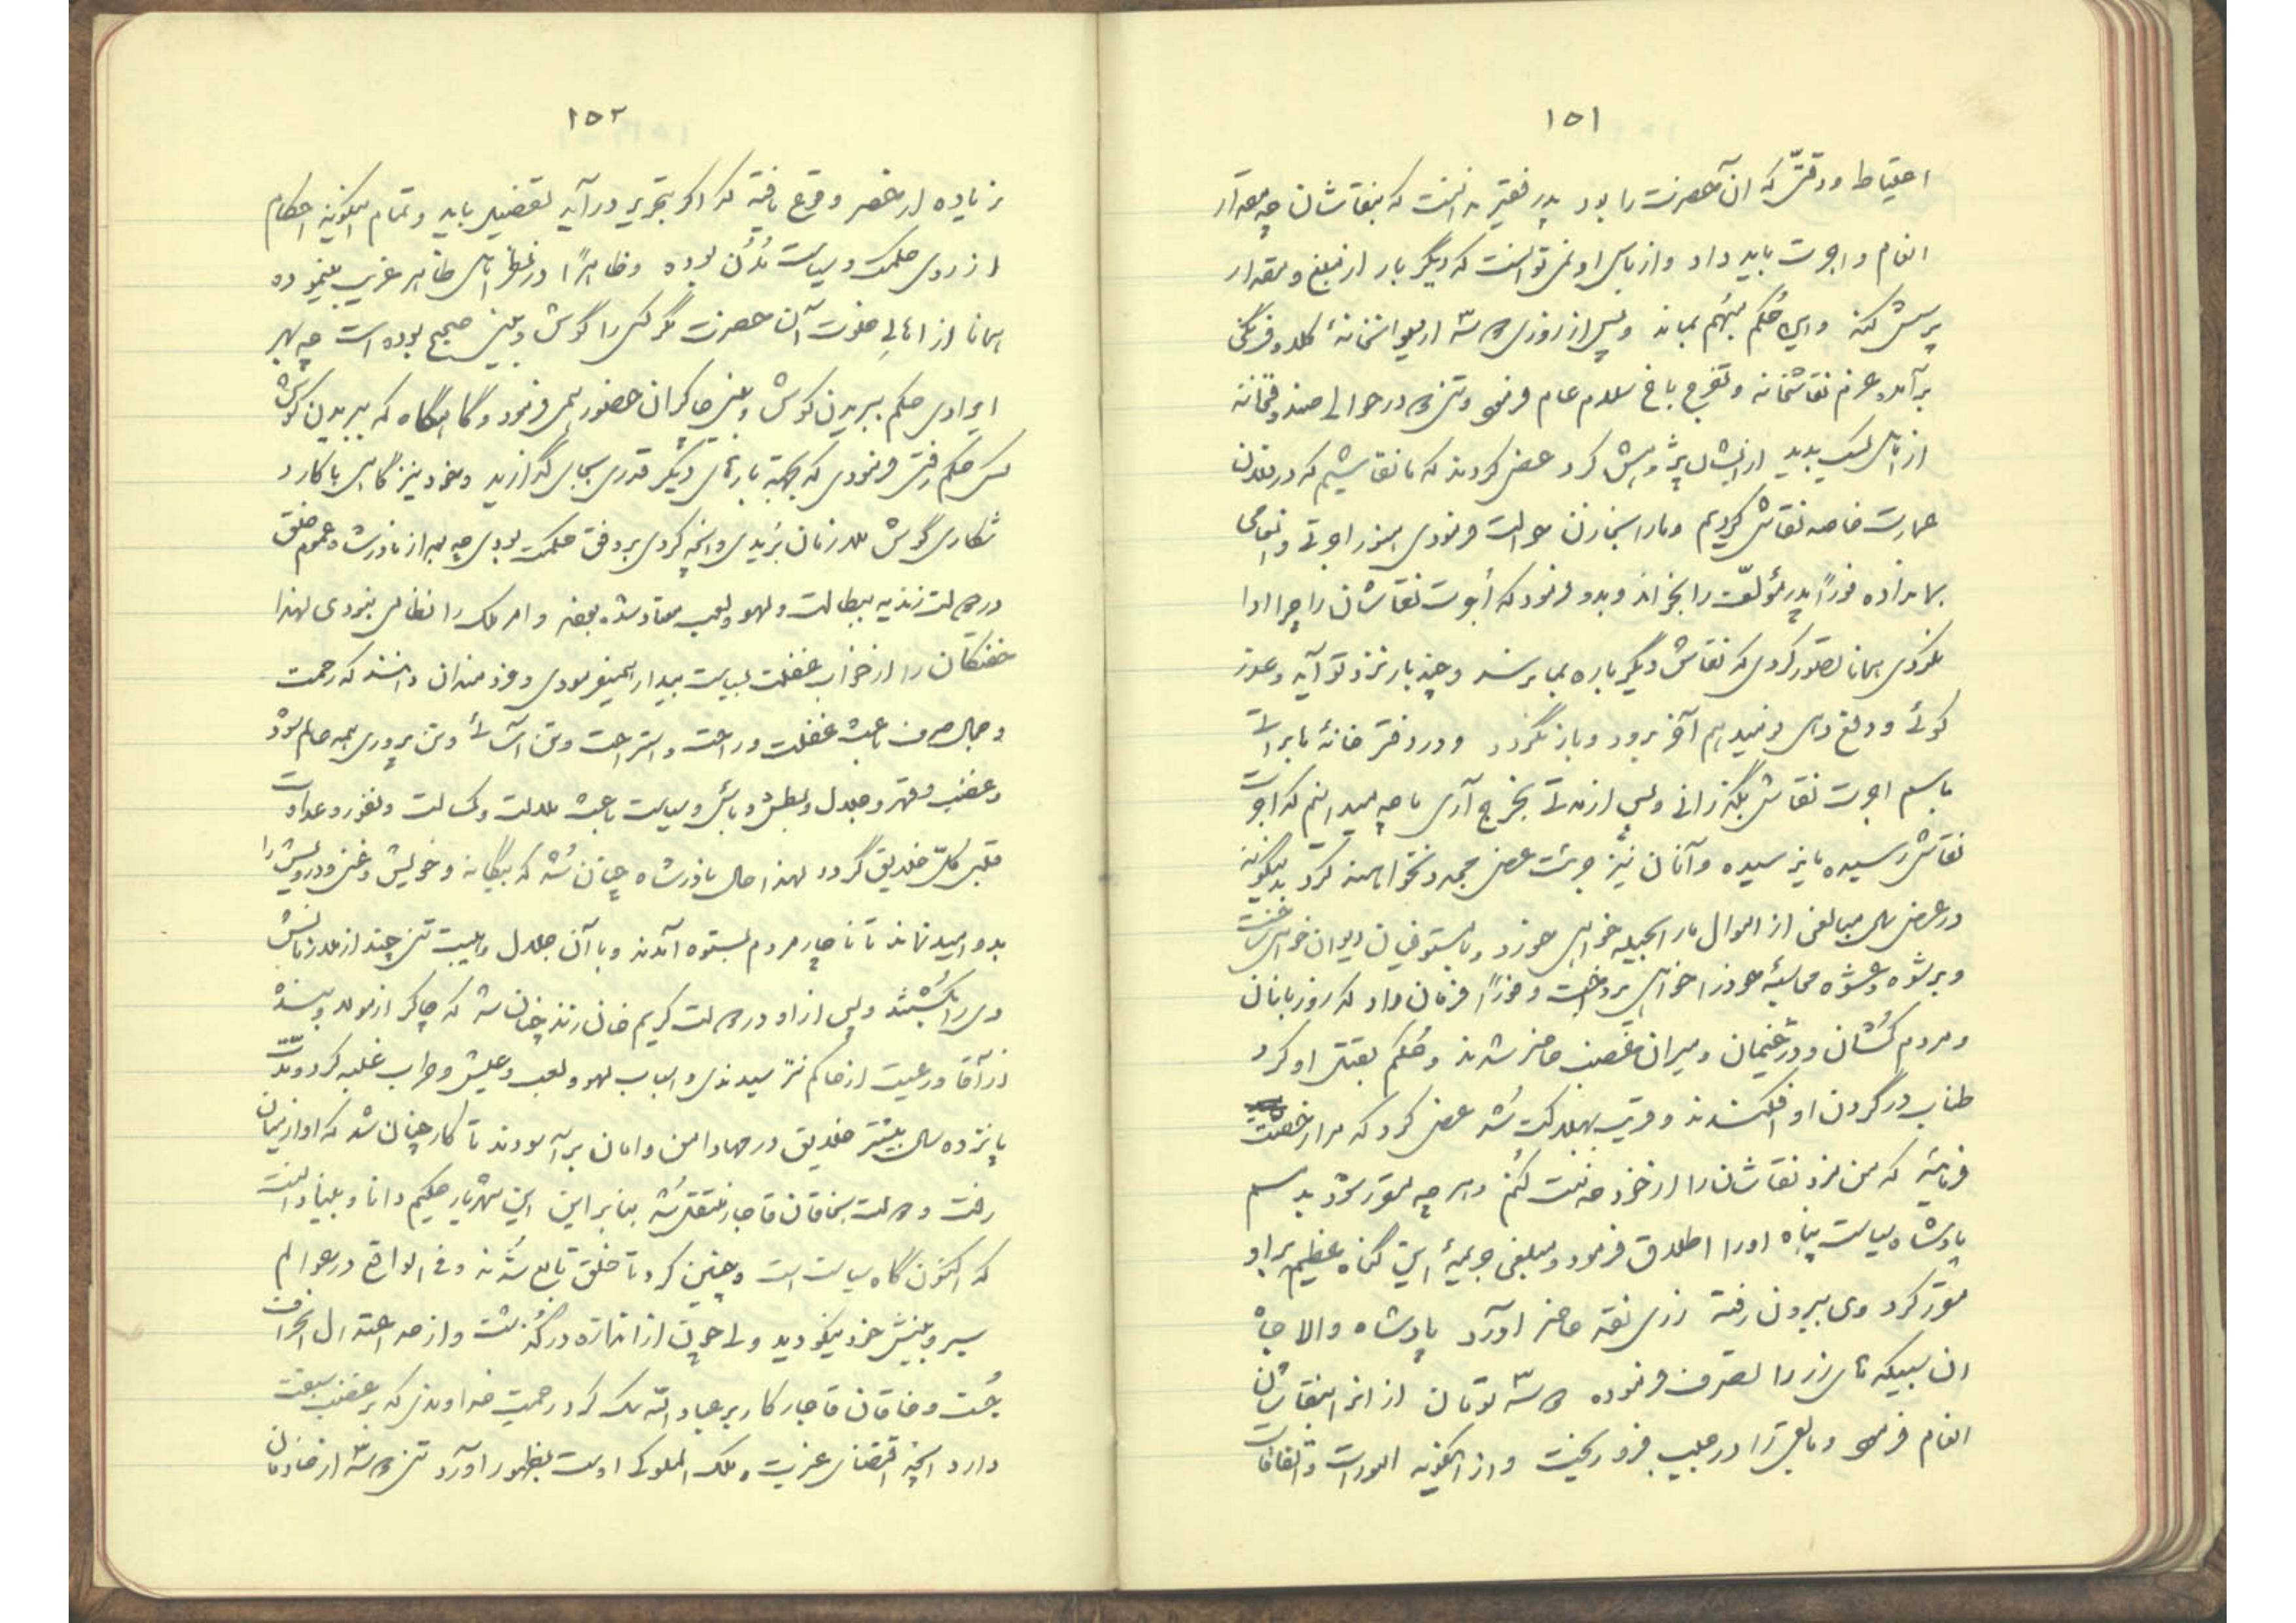 ۱۵۱
احتیاط و دقتی که آن حضرت را بود پدر فقیر ندانست که بنقاشان چه مقدار
انعام و اجرت باید داد و از باس او نمی توانست که دیگر بار از مبلغ و مقدار
پرسش کند و این حکم مبهم بماند و پس از روزی دو سه از دیوانخانهٔ کلاه فرنگی
برآمد عزم نقاشخانه و تفرج باغ سلام عام فرمود و تنی دو در حوالی صندوقخانه
از ناس بدید از ایشان پژوهش کرد عرض کردند که ما نقاشیم که در فلان
عمارت خاصه نقاشی کردیم و ما را بخازن حوالت فرمودی هنوز اجرتی و انعامی
بما نداده فوراً پدر مؤلف را بخواند و بدو فرمود که اجرت نقاشان را چرا ادا
نکردی همانا تصور کردی که نقاش دیگر باره بما برسد و چند بار نزد تو آید و عذر
گوئی و دفع دهی و نمیدهم آخر برود و باز نگردد و در دفتر خانهٔ ما براتی
باسم اجرت نقاش بگذرانی و پس از مدتی بخرج آری ما چه میدانیم که اجرت
نقاش رسیده یا نرسیده و آنان نیز جرئت عرض مجدد نخواهند کرد بدینگونه
در عرض سال مبالغی از اموال ما را بحیله خواهی خورد و با مستوفیان دیوان خواهی ساخت
و برشوه و عشوه محاسبهٔ خود را خواهی پرداخت و فوراً فرمان داد که روزبانان
و مردم کشان و دژخیمان و میران غضب حاضر شدند و حکم بقتل او کرد
طناب در گردن او افکندند و قریب بهلاکت شد عرض کرد که مرا رخصت
فرمائید که من مزد نقاشان را از خود خدمت کنم و هر چه مقرر شود بدهم
پادشاه سیاست پناه او را اطلاق فرمود و مبلغی جریمهٔ این گناه عظیم بر او
مقرر کرد وی بیرون رفته زری نقد حاضر آورد پادشاه والا جاه
آن سبیکه های زر را تصرف فرموده دو سه تومان از آنرا بنقاشان
انعام فرمود و مابقی را در جیب فرو ریخت و از اینگونه امورات و اتفاقات
۱۵۲
زیاده از حصر وقوع یافته که اگر بتحریر درآید تفصیل یابد و تمام اینگونه احکام
از روی حکمت و سیاست مدن بوده و ظاهراً در نظر ناس ظاهر غریب مینموده
همانا از اهالی خلوت آن حضرت مگر کسی را گوش و بینی صحیح بوده است چه بهر
ایرادی حکم ببریدن گوش و بینی چاکران حضور همی فرمود و گاهگاه که ببریدن گوش
کس حکم رفتی فرمودی که بجهة بارهای دیگر قدری بجای گذارید و خود نیز گاهی با کارد
شکاری گوش ملازمان بریدی و آنچه کردی بر وفق حکمت بودی چه بعد از نادرشاه عموم خلق
در دولت زندیه ببطالت و لهو و لعب معتاد شده بودند و امر ملک را نظامی نبودی لهذا
خفتگان را از خواب غفلت بسیاست بیدار همیفرمودی و خردمندان دانند که رحمت
و جمال صرف باعث غفلت و راحت و استراحت و تن آسائی و تن پروری همه عالم شود
و غضب و قهر و جلال و بطش و باس و سیاست باعث ملالت و کسالت و نفور و عداوت
قلبی کل خلایق گردد لهذا حال نادرشاه چنان شد که بیگانه و خویش و غنی و درویش را
بدو امید نماند تا ناچار مردم بستوه آمدند و با آن جلال و هیبت تنی چند از ملازمانش
وی را بکشتند و پس از او در دولت کریم خان زند چنان شد که چاکر از مولا و بنده
از آقا و رعیت از حاکم نترسیدندی و اسباب لهو و لعب و عیش و طرب غلبه کرد و مدت
پانزده سال بیشتر خلایق در مهاد امن و امان برآسودند تا کار چنان شد که او از میان
رفت و دولت بخاقان قاجار منتقل شد بنابراین این شهریار حکیم دانا و بینا دانست
که اکنون گاه سیاست است و چنین کرد تا خلق تابع شدند و فی الواقع در عوالم
سیر و بینش خود نیکو دید ولی چون از اندازه درگذشت و از حد اعتدال انحراف
جُست و خاقان قاجار کار بر عباد الله تنگ کرد رحمت خداوندی که بر غضب سبقت
دارد آنچه اقتضای عزت ملک الملوکی اوست بظهور آورد تنی دو سه از خادمان